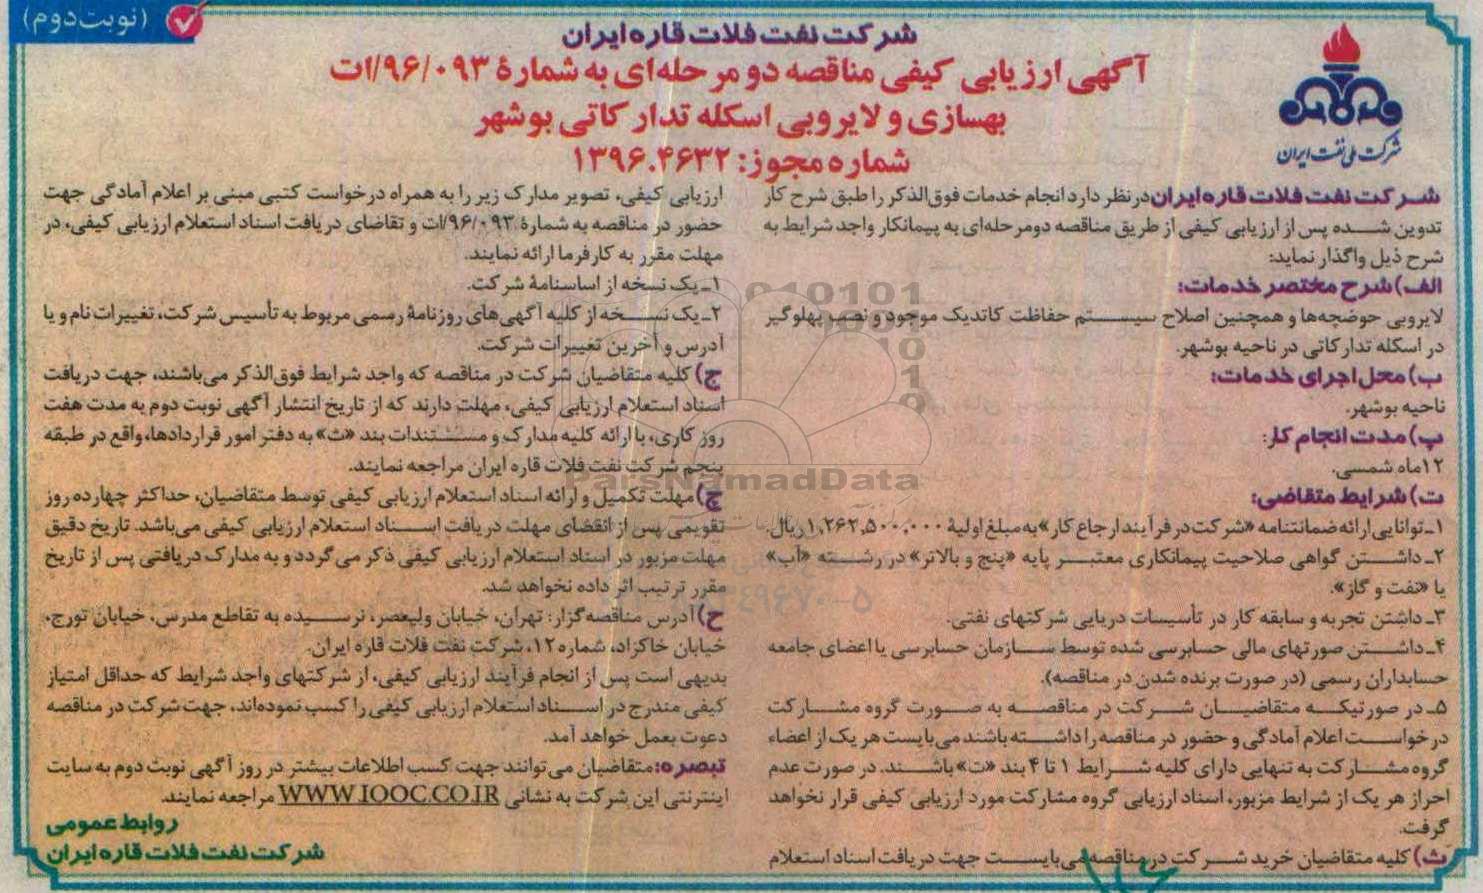 (نوبت دوم)
شرکت نفت فلات قاره ایران
آگهی ارزیابی کیفی مناقصه دو مرحله‌ای به شمارهٔ ۹۶/۰۹۳/ات
بهسازی و لایروبی اسکله تدارکاتی بوشهر
شماره مجوز: ۱۳۹۶.۴۶۳۲
شرکت ملی نفت ایران
شرکت نفت فلات قاره ایران در نظر دارد انجام خدمات فوق‌الذکر را طبق شرح کار
تدوین شده پس از ارزیابی کیفی از طریق مناقصه دومرحله‌ای به پیمانکار واجد شرایط به
شرح ذیل واگذار نماید:
الف) شرح مختصر خدمات:
لایروبی حوضچه‌ها و همچنین اصلاح سیستم حفاظت کاتدیک موجود و نصب پهلوگیر
در اسکله تدارکاتی در ناحیه بوشهر.
ب) محل اجرای خدمات:
ناحیه بوشهر.
پ) مدت انجام کار:
۱۲ماه شمسی.
ت) شرایط متقاضی:
۱ـ توانایی ارائه ضمانتنامه «شرکت در فرآیند ارجاع کار» به مبلغ اولیهٔ ۱,۲۶۲,۵۰۰,۰۰۰ ریال.
۲ـ داشتن گواهی صلاحیت پیمانکاری معتبر پایه «پنج و بالاتر» در رشته «آب»
یا «نفت و گاز».
۳ـ داشتن تجربه و سابقه کار در تأسیسات دریایی شرکتهای نفتی.
۴ـ داشتن صورتهای مالی حسابرسی شده توسط سازمان حسابرسی یا اعضای جامعه
حسابداران رسمی (در صورت برنده شدن در مناقصه).
۵ـ در صورتیکه متقاضیان شرکت در مناقصه به صورت گروه مشارکت
درخواست اعلام آمادگی و حضور در مناقصه را داشته باشند می‌بایست هر یک از اعضاء
گروه مشارکت به تنهایی دارای کلیه شرایط ۱ تا ۴ بند «ت» باشند. در صورت عدم
احراز هر یک از شرایط مزبور، اسناد ارزیابی گروه مشارکت مورد ارزیابی کیفی قرار نخواهد
گرفت.
ث) کلیه متقاضیان خرید شرکت در مناقصه می‌بایست جهت دریافت اسناد استعلام
ارزیابی کیفی، تصویر مدارک زیر را به همراه درخواست کتبی مبنی بر اعلام آمادگی جهت
حضور در مناقصه به شمارهٔ ۹۶/۰۹۳/ات و تقاضای دریافت اسناد استعلام ارزیابی کیفی، در
مهلت مقرر به کارفرما ارائه نمایند.
۱ـ یک نسخه از اساسنامهٔ شرکت.
۲ـ یک نسخه از کلیه آگهی‌های روزنامهٔ رسمی مربوط به تأسیس شرکت، تغییرات نام و یا
آدرس و آخرین تغییرات شرکت.
ج) کلیه متقاضیان شرکت در مناقصه که واجد شرایط فوق‌الذکر می‌باشند، جهت دریافت
اسناد استعلام ارزیابی کیفی، مهلت دارند که از تاریخ انتشار آگهی نوبت دوم به مدت هفت
روز کاری، با ارائه کلیه مدارک و مستندات بند «ث» به دفتر امور قراردادها، واقع در طبقه
پنجم شرکت نفت فلات قاره ایران مراجعه نمایند.
چ) مهلت تکمیل و ارائه اسناد استعلام ارزیابی کیفی توسط متقاضیان، حداکثر چهارده روز
تقویمی پس از انقضای مهلت دریافت اسناد استعلام ارزیابی کیفی می‌باشد. تاریخ دقیق
مهلت مزبور در اسناد استعلام ارزیابی کیفی ذکر می گردد و به مدارک دریافتی پس از تاریخ
مقرر ترتیب اثر داده نخواهد شد.
ح) آدرس مناقصه‌گزار: تهران، خیابان ولیعصر، نرسیده به تقاطع مدرس، خیابان تورج،
خیابان خاکزاد، شماره ۱۲، شرکت نفت فلات قاره ایران.
بدیهی است پس از انجام فرآیند ارزیابی کیفی، از شرکتهای واجد شرایط که حداقل امتیاز
کیفی مندرج در اسناد استعلام ارزیابی کیفی را کسب نموده‌اند، جهت شرکت در مناقصه
دعوت بعمل خواهد آمد.
تبصره: متقاضیان می‌توانند جهت کسب اطلاعات بیشتر در روز آگهی نوبت دوم به سایت
اینترنتی این شرکت به نشانی WWW.IOOC.CO.IR مراجعه نمایند.
روابط عمومی
شرکت نفت فلات قاره ایران
ParsNamadData